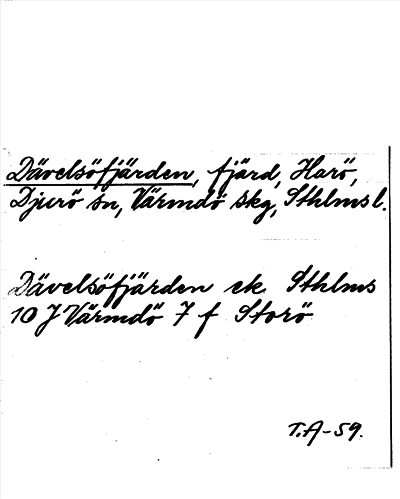 Dävelsöfjärden, fjärd, Harö,
Djurö sn, Värmdö skg, Sthlms l.
Dävelsöfjärden ek Sthlms
10 J Värmdö 7 f Storö
T.A-59.